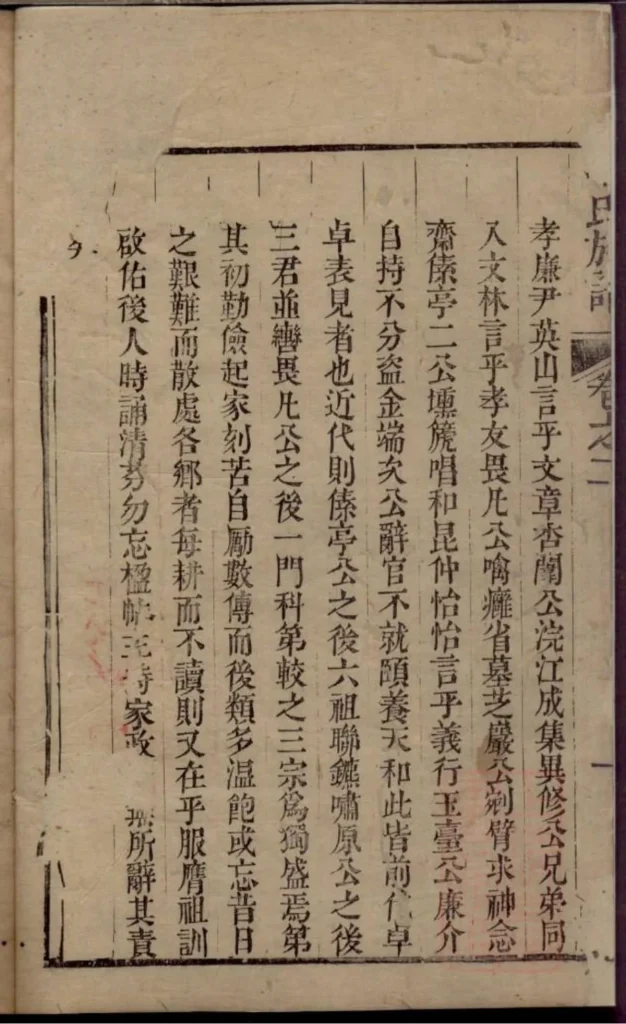 孝廉尹英山言乎文章杏閣公浣江成集異修公兄弟同
入文林言乎孝友畏凡公噙癰省墓芝巖公剜臂求神念
齋傃亭二公壎篪唱和昆仲怡怡言乎義行玉臺公廉介
自持不分盜金端矣公辭官不就頤養天和此皆前代卓
卓表見者也近代則傃亭公之後六祖聯鑣嘯原公之後
三君並轡畏凡公之後一門科第較之三宗爲獨盛焉第
其初勤儉起家刻苦自勵數傳而後類多溫飽或忘昔日
之艱難而散處各鄉者每耕而不讀則又在乎服膺祖訓
啟佑後人時誦清芬勿忘楹 家政 所辭其責
夕
氏族 卷之二